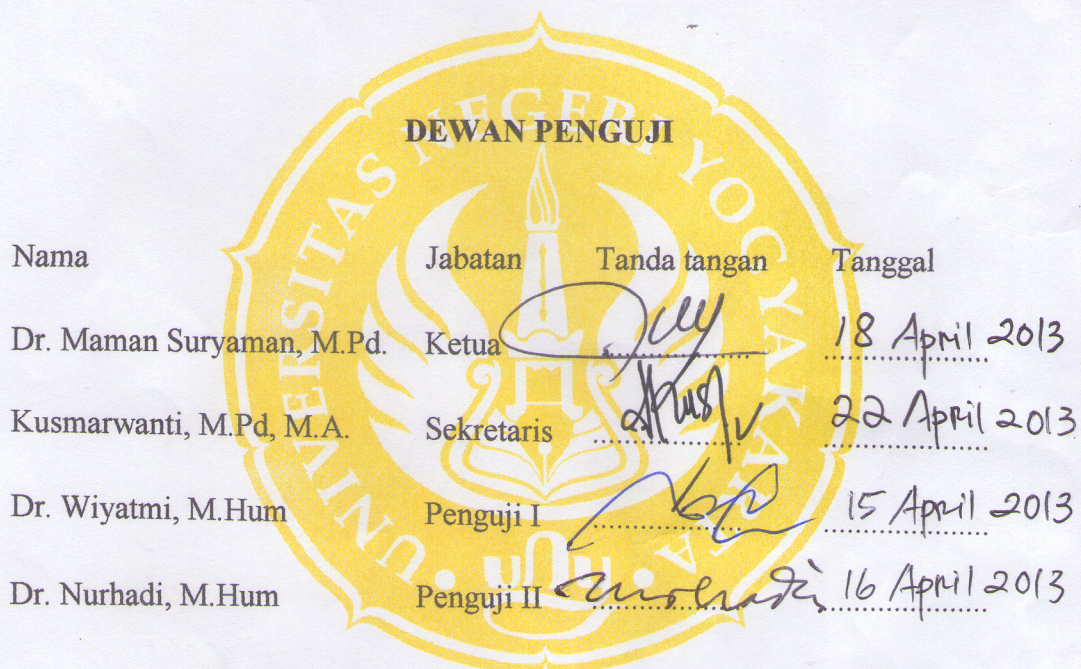 UNIVERSITAS NEGERI YOGYAKARTA
DEWAN PENGUJI
Nama Jabatan Tanda tangan Tanggal
Dr. Maman Suryaman, M.Pd. Ketua 18 April 2013
Kusmarwanti, M.Pd, M.A. Sekretaris 22 April 2013
Dr. Wiyatmi, M.Hum Penguji I 15 April 2013
Dr. Nurhadi, M.Hum Penguji II 16 April 2013